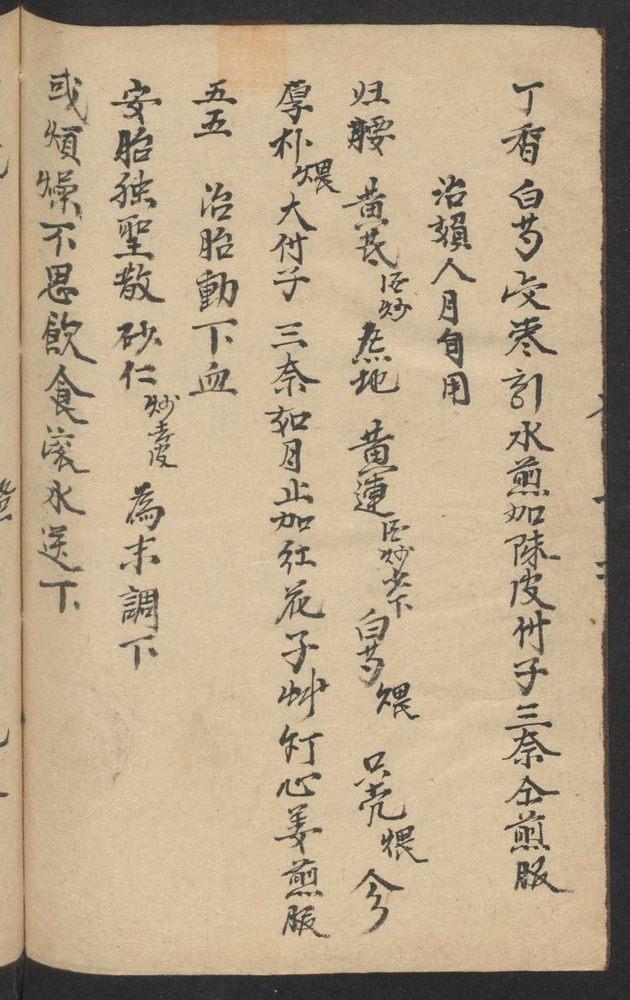 丁香白芍灮枣引水煎加陳皮付子三奈仝煎服
治賴人月旬用
归䏚 黄芪 酒炒 熟地 黄連 酒炒 白芍 煨 只壳 煨 今
厚朴 煨 大付子 三奈如月止加紅花子艸灯心姜煎服
五五 治胎動下血
安胎独聖散 砂仁 炒去皮 為末調下
或煩燥不思飲食滚水送下